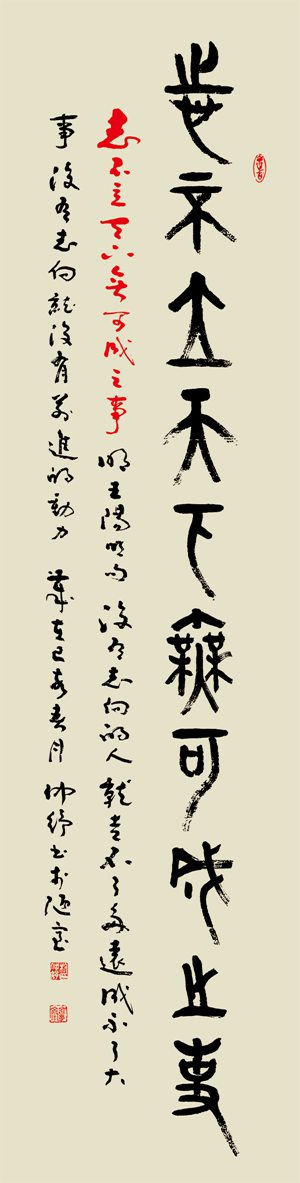 志不立天下無可成之事
志不立天下無可成之事 明王陽明句 没有志向的人就走不了多遠成不了大
事 没有志向就没有前進的動力 歲在己亥春月 書於陋室